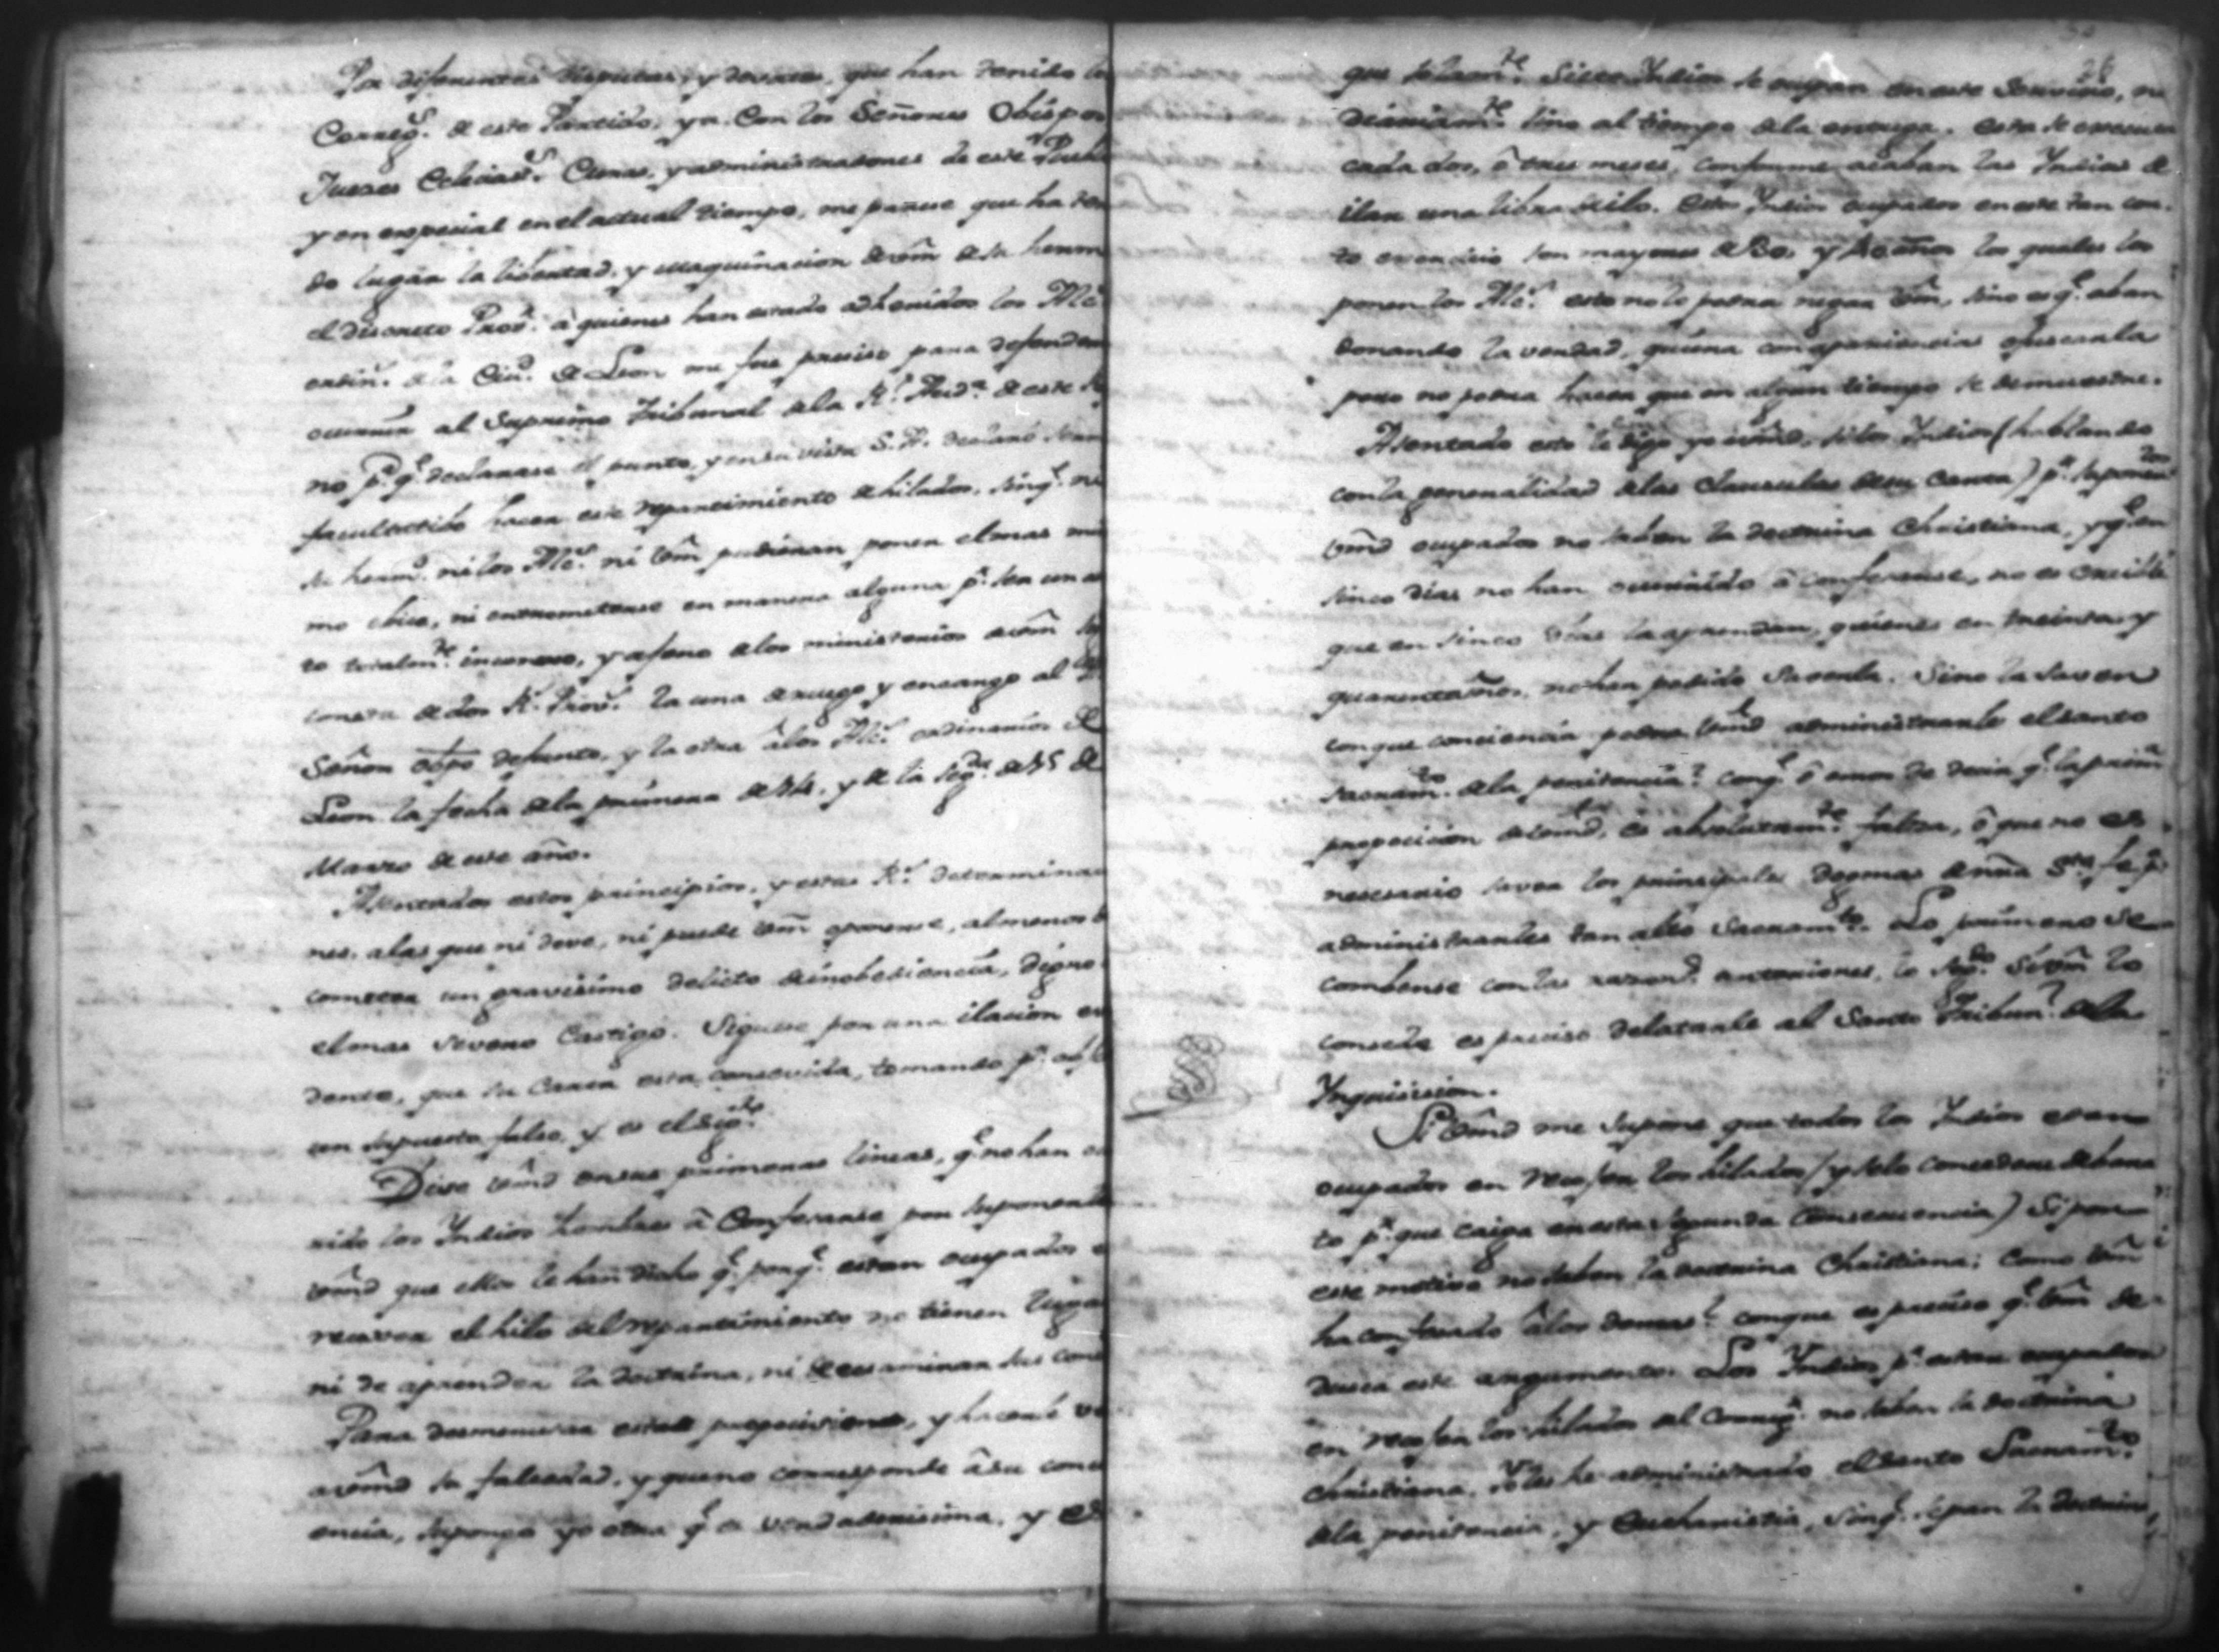 Por diferentes disputas, y devates, que han tenido los
Correg.s de este Partido, ya con los Señores Obispos
Jueses Eclesiast.s Curas, y administradores de este Pueblo
y en especial en el actual tiempo, me parese que ha da
do lugar la libertad, y maquinacion de vm de su herm
el discreto Prov.r â quienes han estado adheridos los Alc.s
ordin.s de la Ciu.d de Leon me fue preciso para defenderme
ocurrir al Supremo Tribunal de la R.l Aud.a de este Rey
no p.a q.e declarase el punto, y en su vista S.A. declaró
facultativo hacer este repartimiento de hilados, sin q.e ni
su herm.o ni los Alc.s ni vm pudieran poner el mas mi
mo obice, ni entrometerse en manera alguna p.r ser un
to totalm.te inconexo, y ageno de los ministerios
consta de dos R.s Prov.s la una de ruego y encargo al
Señor obpo defunto, y la otra âlos Alc.s ordinarios de
Leon la fecha de la primera de 14. y de la seg.da de 15 de
Marzo de este año.
Asentados estos principios, y estas R.s determinacio
nes, alas que ni deve, ni puede vm oponerse, al menos
cometer un gravisimo delicto de inobediencia, digno
el mas severo Castigo. Siguese por una ilacion evi
dente, que su Carta esta concevida, tomando p.r
un supuesto falso, y es el sig.te
Dise vmd en sus primeras lineas, q.e no han ocu
rrido los Indios hombres â Confesarse por suponerle
vmd que ellos le han dicho q.e porq.e estan ocupados en
recivir el hilo del repartimiento no tienen lugar
ni de aprender la doctrina, ni de examinar sus conci
Para desmenusar estas proposiciones, y hacerle ver
a vmd su falsedad, y que no corresponde âsu conci
encia, supongo yo otra q.e es verdaderisima, y es
que solam.te Siete Indios se ocupan en este Servicio, no
diariam.te sino al tiempo dela entrega. esta se executa
cada dos, ô tres meses, conforme acaban las Indias de
ilar una libra de ilo. Estos Indios ocupados en este tan cor-
to exercicio son mayores de 30. y 40 años los quales los
ponen los Alc.s esto no lo podra negar vm, sino es q.e aban
donando la verdad, quiera con apariencias ofuscarla
pero no podra hacer que en algun tiempo se demuestre.
Asentado esto le digo yo â vmd, si los Indios (hablando
con la generalidad de las Clausulas de su Carta) p.r suponerlos
vmd ocupados no saben la doctrina Christiana, y q.e en
sinco dias no han ocurrido â confesarse, no es creible
que en sinco dias la aprendan, quienes en treinta y
quarenta años, no han podido saverla. Sino la saven
con que conciencia podra vmd administrarle el santo
sacram.to dela penitencia? conq.e ô emos de decir q.e la prim.a
proposicion de vmd, es absolutam.te falsa, ô que no es
nesesario saver los principales dogmas de nra S.ta fe p.a
administrarles tan alto Sacram.to Lo primero se
combense con las razon.s anteriores, lo seg.do Si vm lo
consede es preciso delatarle al Santo Tribun.l dela
Inquisision.
Si vmd me supone que todos los Indios estan
ocupados en recojer los hilados (y solo concedere de bara
to p.a que caiga en esta segunda Consecuencia) Si por
este motivo no saben la doctrina Christiana; Como vm
ha confesado âlos demas? conque es preciso q.e vm de-
dusca este argumento. Los Indios p.r estar ocupados
en recojer los hilados del Correg.r no saben la doctrina
christiana. Yo les he administrado el santo Sacram.to
dela penitencia, y Eucharistia, sin q.e sepan la doctrina